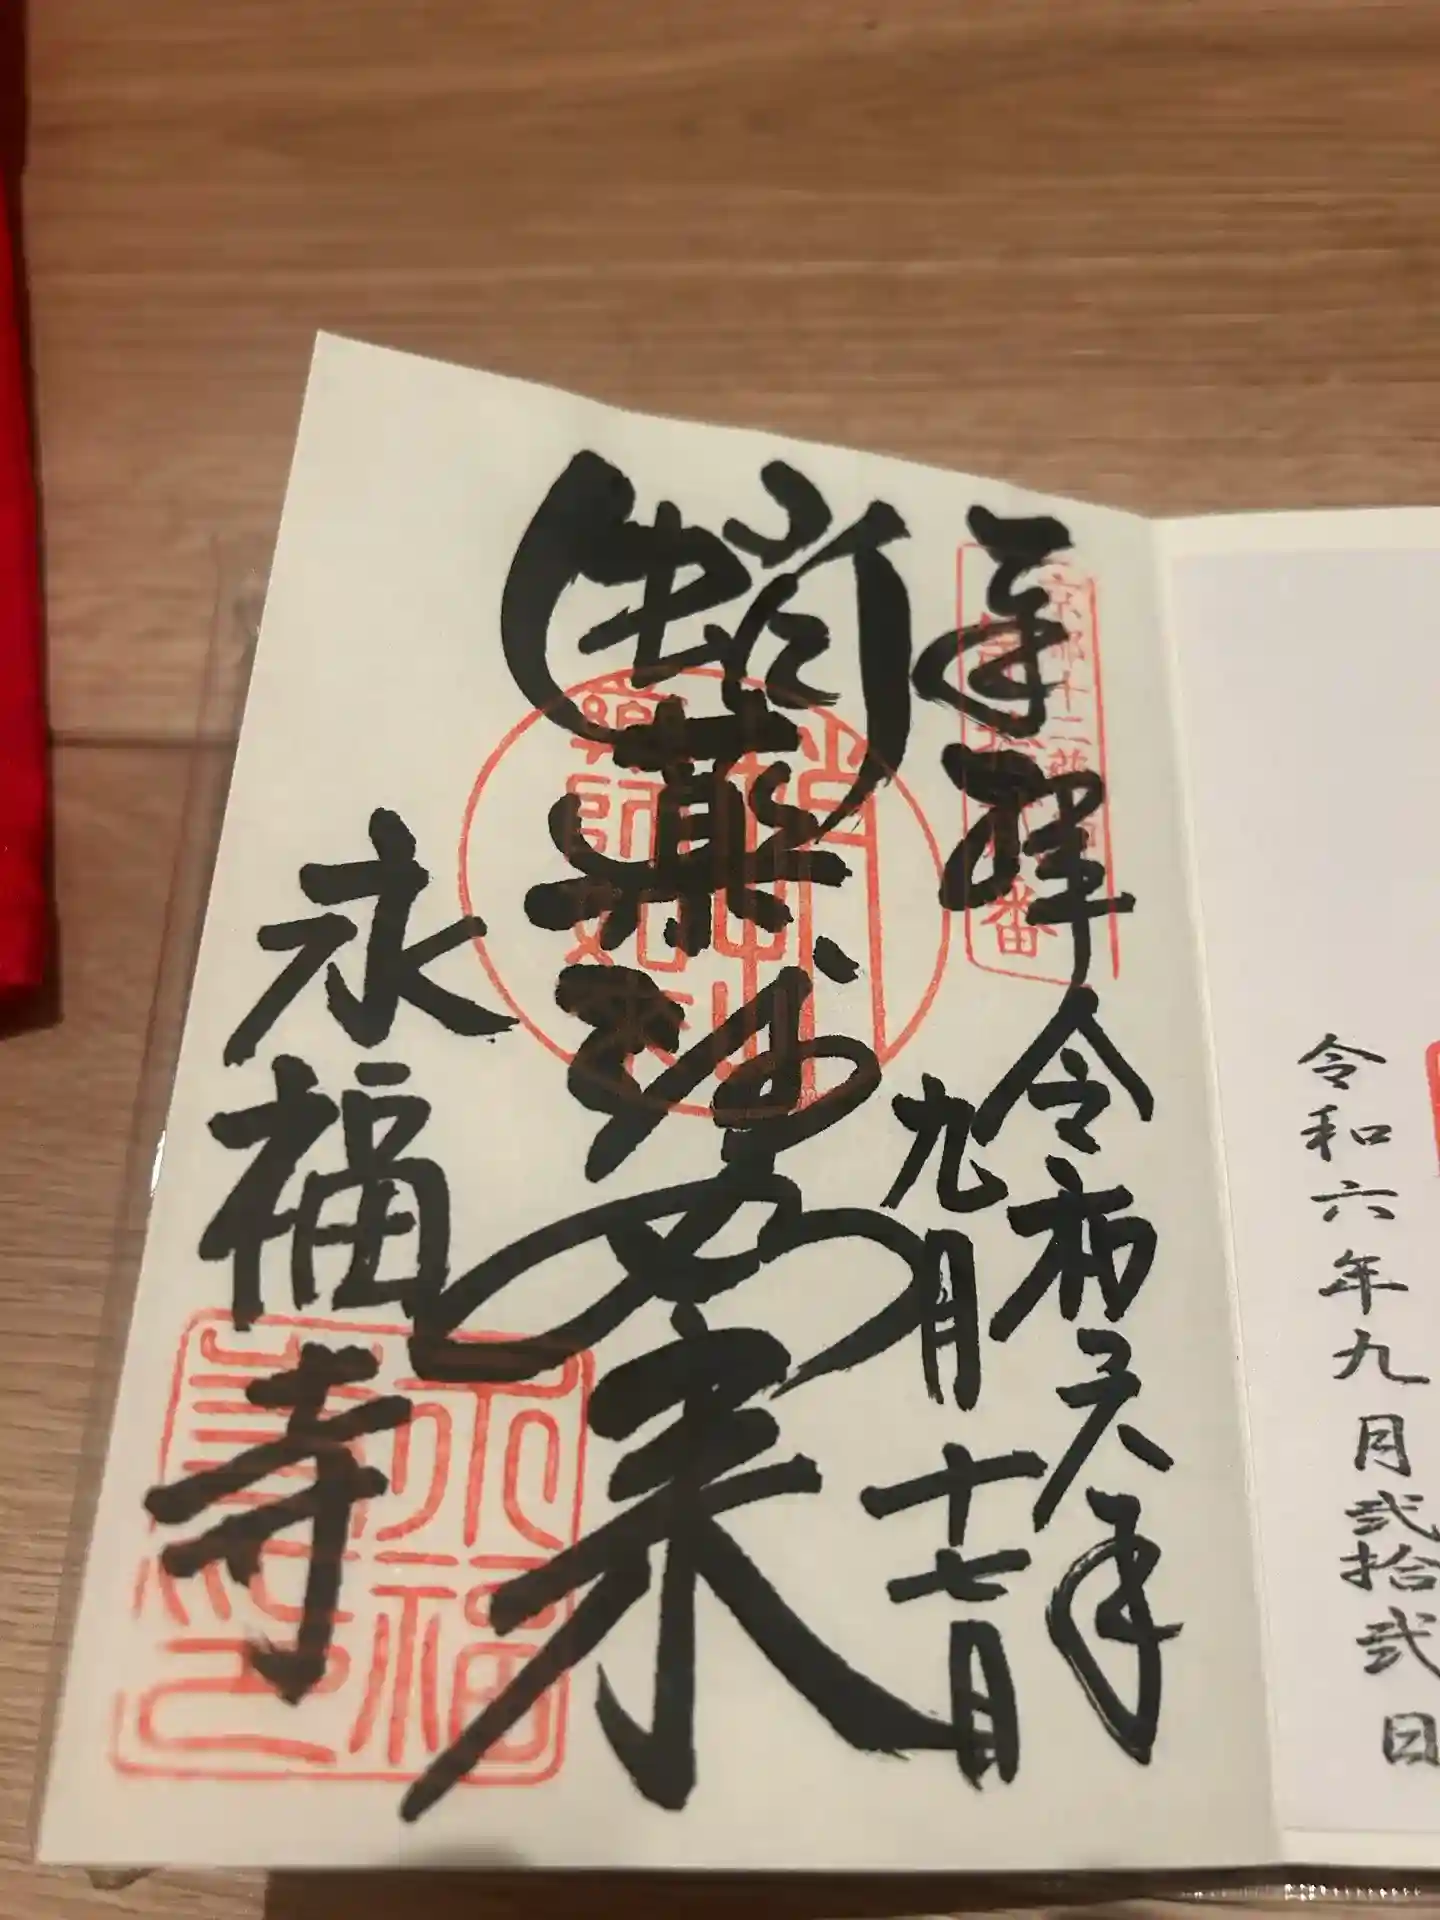 奉拝
令和六年
九月十七日
蛸薬師如来
永福寺
京都十二薬師
番
薬師如来
永福
令和六年九月弐拾弐日